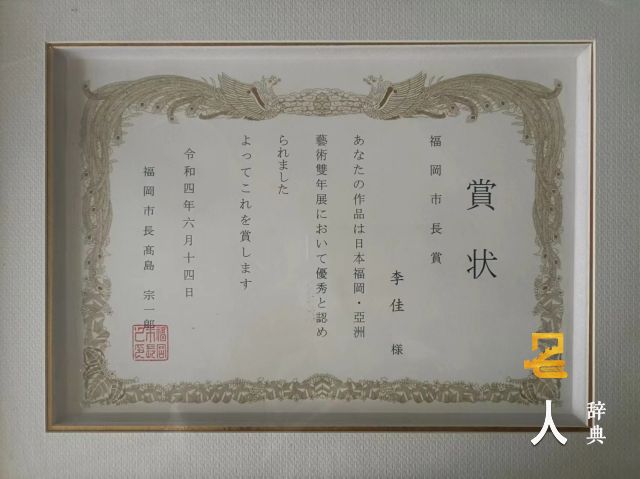 賞状
福岡市長賞
李佳様
あなたの作品は日本福岡・亞洲
藝術雙年展において優秀と認め
られました
よってこれを賞します
令和四年六月十四日
福岡市長髙島 宗一郎
福岡
市長
之印
名人
辞典